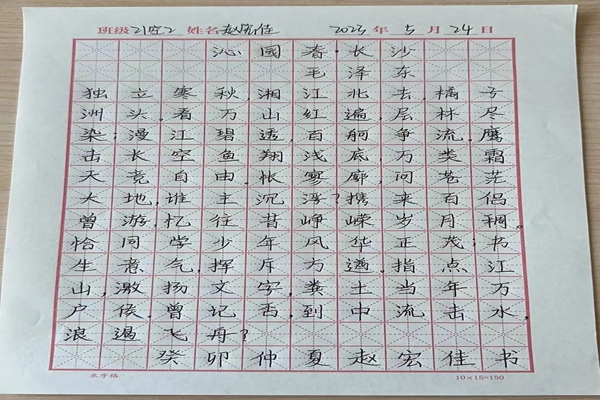 班级 21空2 姓名 赵宏佳 2023 年 5 月 24 日
沁园春·长沙
毛泽东
独立寒秋,湘江北去,橘子
洲头,看万山红遍,层林尽
染;漫江碧透,百舸争流.鹰
击长空,鱼翔浅底,万类霜
天竞自由.怅寥廓,问苍茫
大地,谁主沉浮?携来百侣
曾游,忆往昔峥嵘岁月稠。
恰同学少年风华正茂;书
生意气,挥斥方遒.指点江
山,激扬文字,粪土当年万
户侯.曾记否,到中流击水,
浪遏飞舟?
癸卯仲夏赵宏佳书
米字格 10×15=150